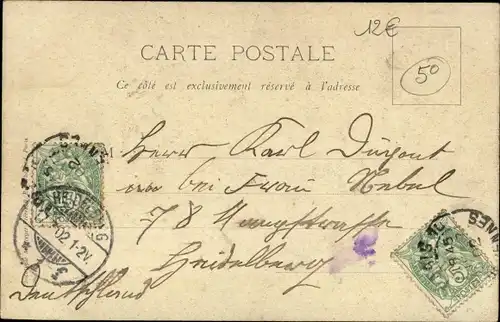 12€
50
CARTE POSTALE
Ce côté est exclusivement réservé à l'adresse
Herrn Karl Dupont
bei Frau Nebel
78 Hauptstrasse
Heidelberg
Deutschland
HEIDELBERG
02.1-2V.